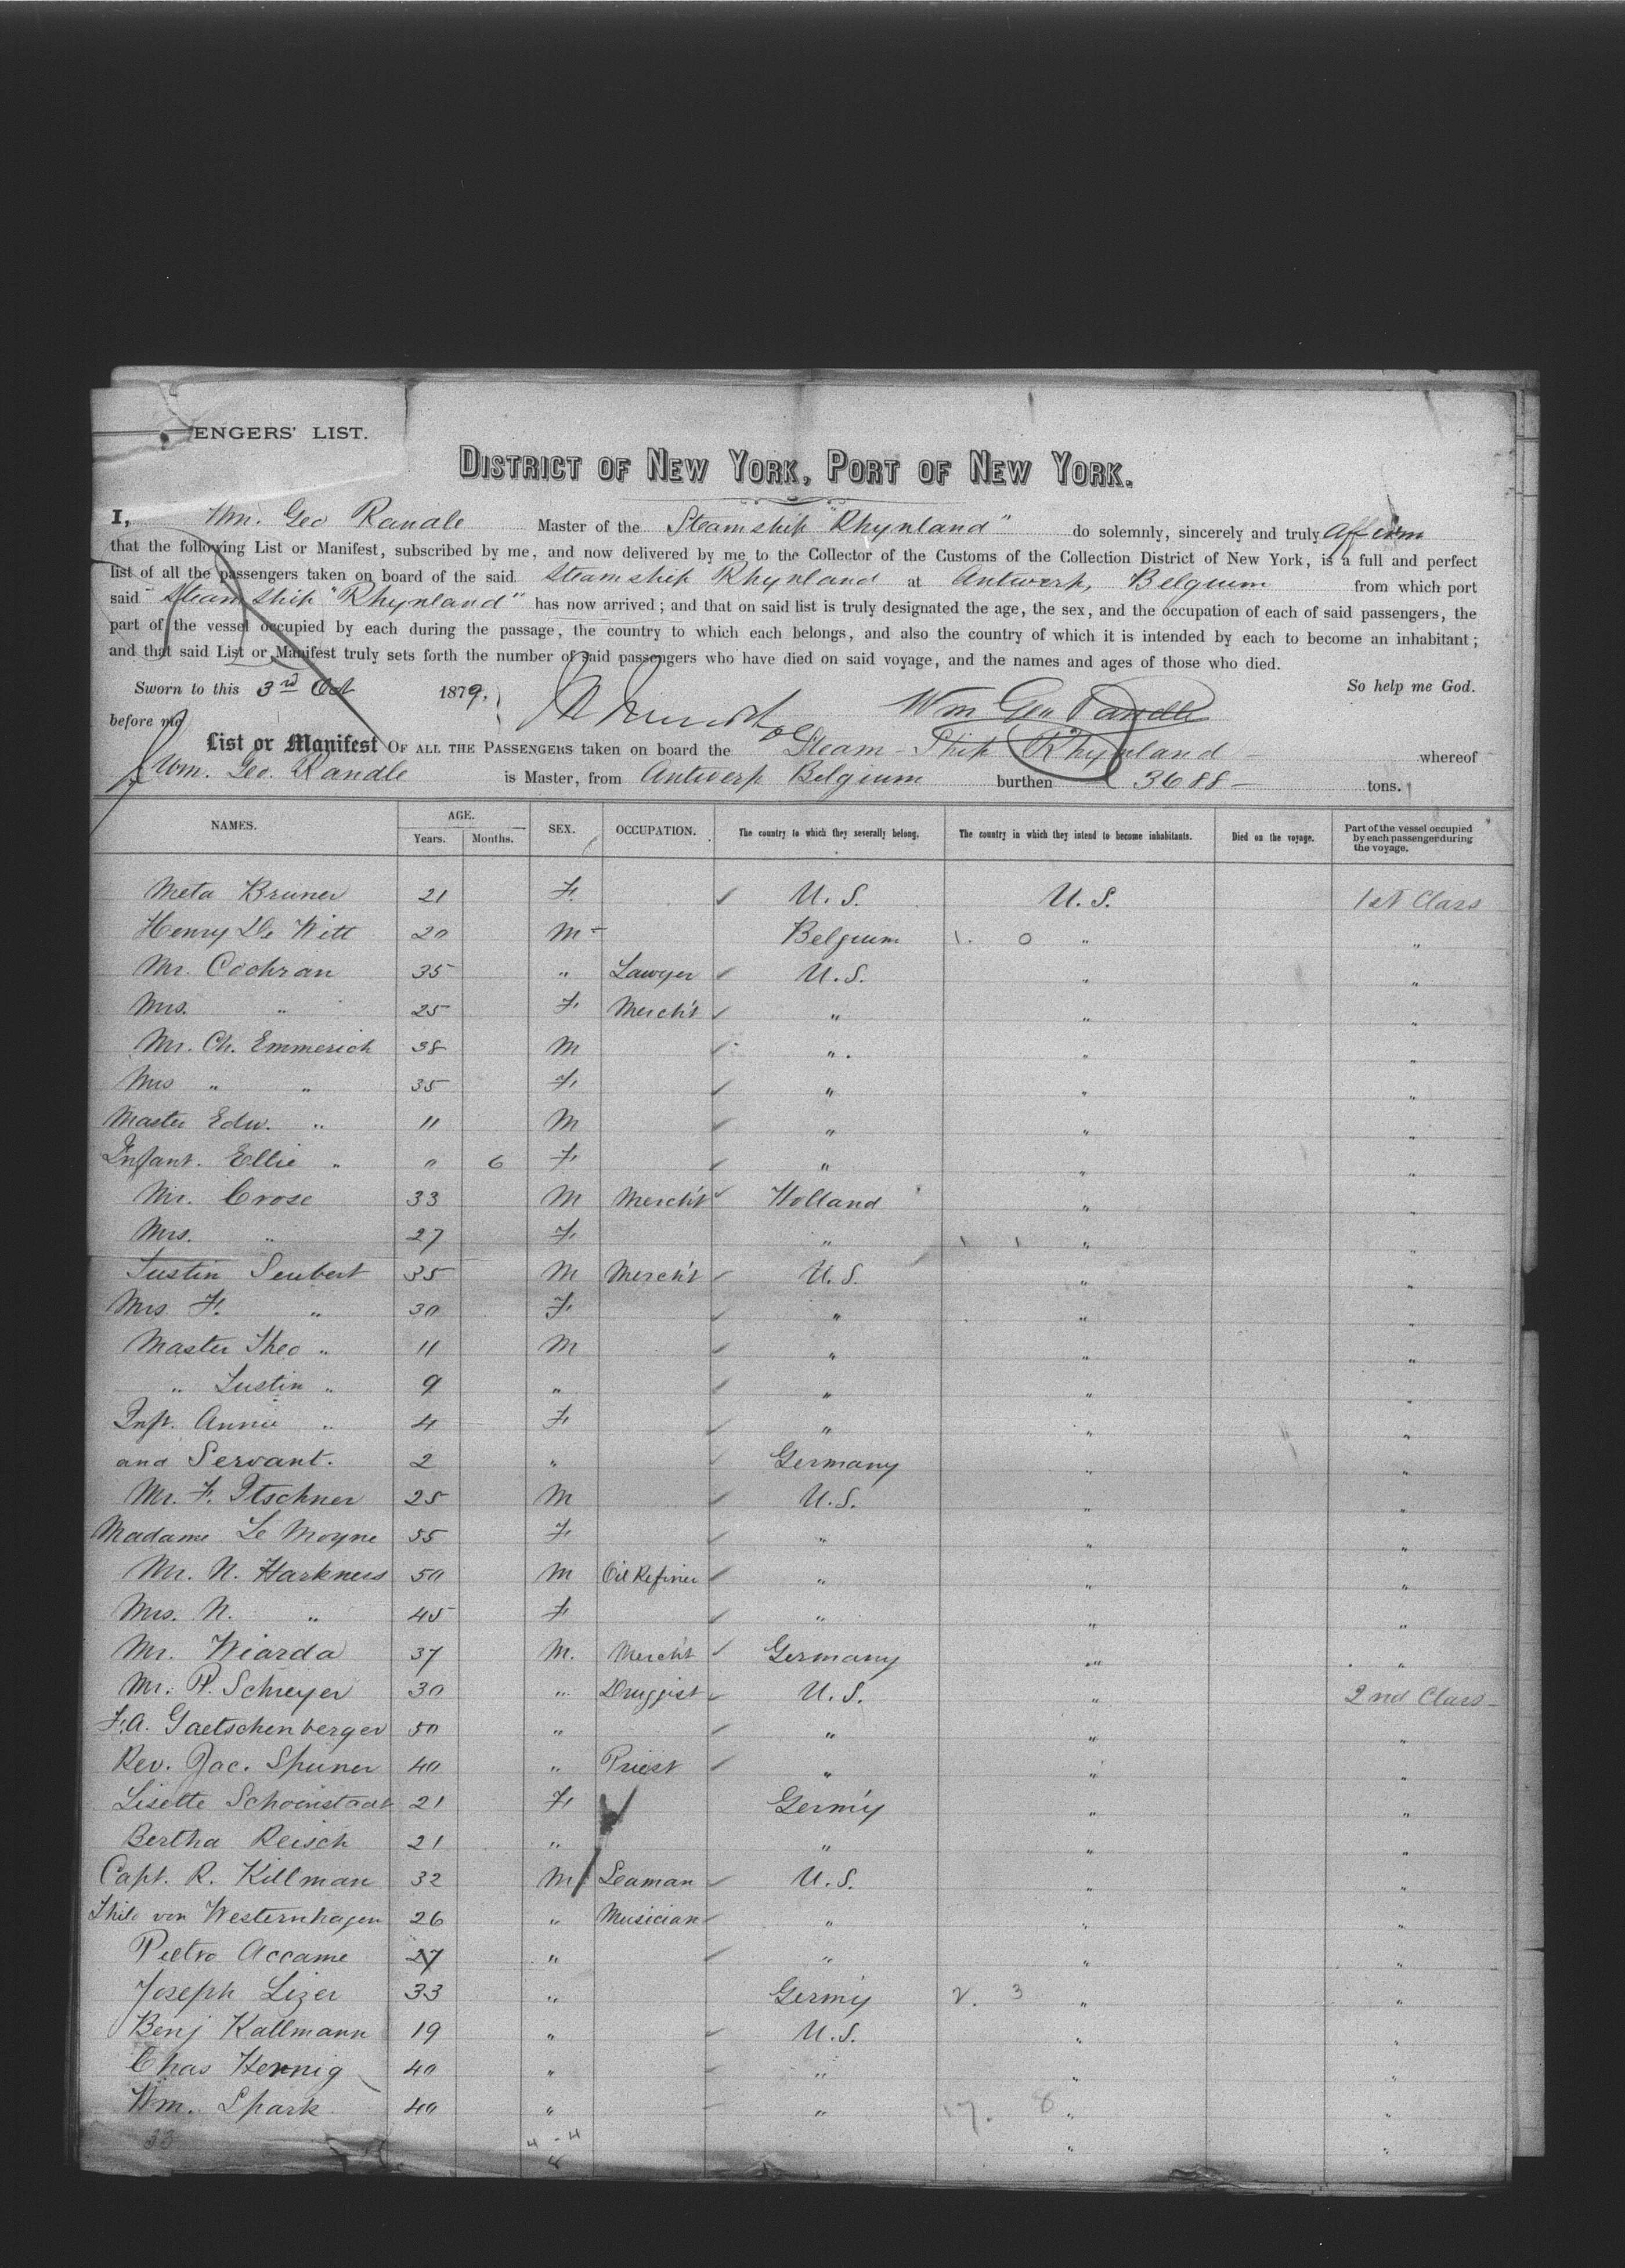 ENGERS' LIST.
DISTRICT OF NEW YORK, PORT OF NEW YORK.
I, Wm. Geo Randle Master of the Steamship "Rhynland" do solemnly, sincerely and truly affirm
that the following List or Manifest, subscribed by me, and now delivered by me to the Collector of the Customs of the Collection District of New York, is a full and perfect
list of all the passengers taken on board of the said Steamship Rhynland at Antwerp, Belgium from which port
said Steam Ship "Rhynland" has now arrived; and that on said list is truly designated the age, the sex, and the occupation of each of said passengers, the
part of the vessel occupied by each during the passage, the country to which each belongs, and also the country of which it is intended by each to become an inhabitant;
and that said List or Manifest truly sets forth the number of said passengers who have died on said voyage, and the names and ages of those who died.
Sworn to this 3rd Oct 1879. So help me God.
before me Wm Geo Randle
List or Manifest OF ALL THE PASSENGERS taken on board the Steam-Ship Rhynland whereof
Wm. Geo. Randle is Master, from Antwerp Belgium burthen 3688 tons.
NAMES. AGE. Years. Months. SEX. OCCUPATION. The country to which they severally belong. The country in which they intend to become inhabitants. Died on the voyage. Part of the vessel occupied by each passenger during the voyage.
Meta Bruner 21 F. U.S. U.S. 1st Class
Henry De Witt 20 M Belgium 1. 0 " "
Mr. Cochran 35 " Lawyer U.S. " "
Mrs. " 25 F Merch't " " "
Mr. Ch. Emmerich 38 M " " "
Mrs " " 35 F " " "
Master Edw. " 11 M " " "
Infant. Ellie " " 6 F " " "
Mr. Crose 33 M Merch't Holland " "
Mrs. " 27 F " 1 1 " "
Justin Seubert 35 M Merch't U.S. " "
Mrs F. " 30 F " " "
Master Theo " 11 M " " "
" Justin " 9 " " " "
Inft. Annie " 4 F " " "
and Servant. 2 " Germany " "
Mr. F. Itschner 25 M U.S. " "
Madame Le Moyne 55 F " " "
Mr. N. Harkness 50 M Oil Refiner " " "
Mrs. N. " 45 F " " "
Mr. Wiarda 37 M. Merch't Germany " "
Mr. P. Schreyer 30 " Druggist U.S. " 2nd Class
F.A. Gaetschenberger 50 " " " "
Rev. Jac. Spuner 40 " Priest " " "
Lisette Schoenstadt 21 F Germ'y " "
Bertha Reisch 21 " " " "
Capt. R. Killman 32 M Seaman U.S. " "
Thilo von Westernhagen 26 " Musician " " "
Pietro Accame 27 " " " "
Joseph Lizer 33 " Germ'y 2. 3 " "
Benj Kallmann 19 " U.S. " "
Chas Hennig 40 " " " "
Wm. Spark 40 " " 17. 8 " "
33 4-4 " "
8